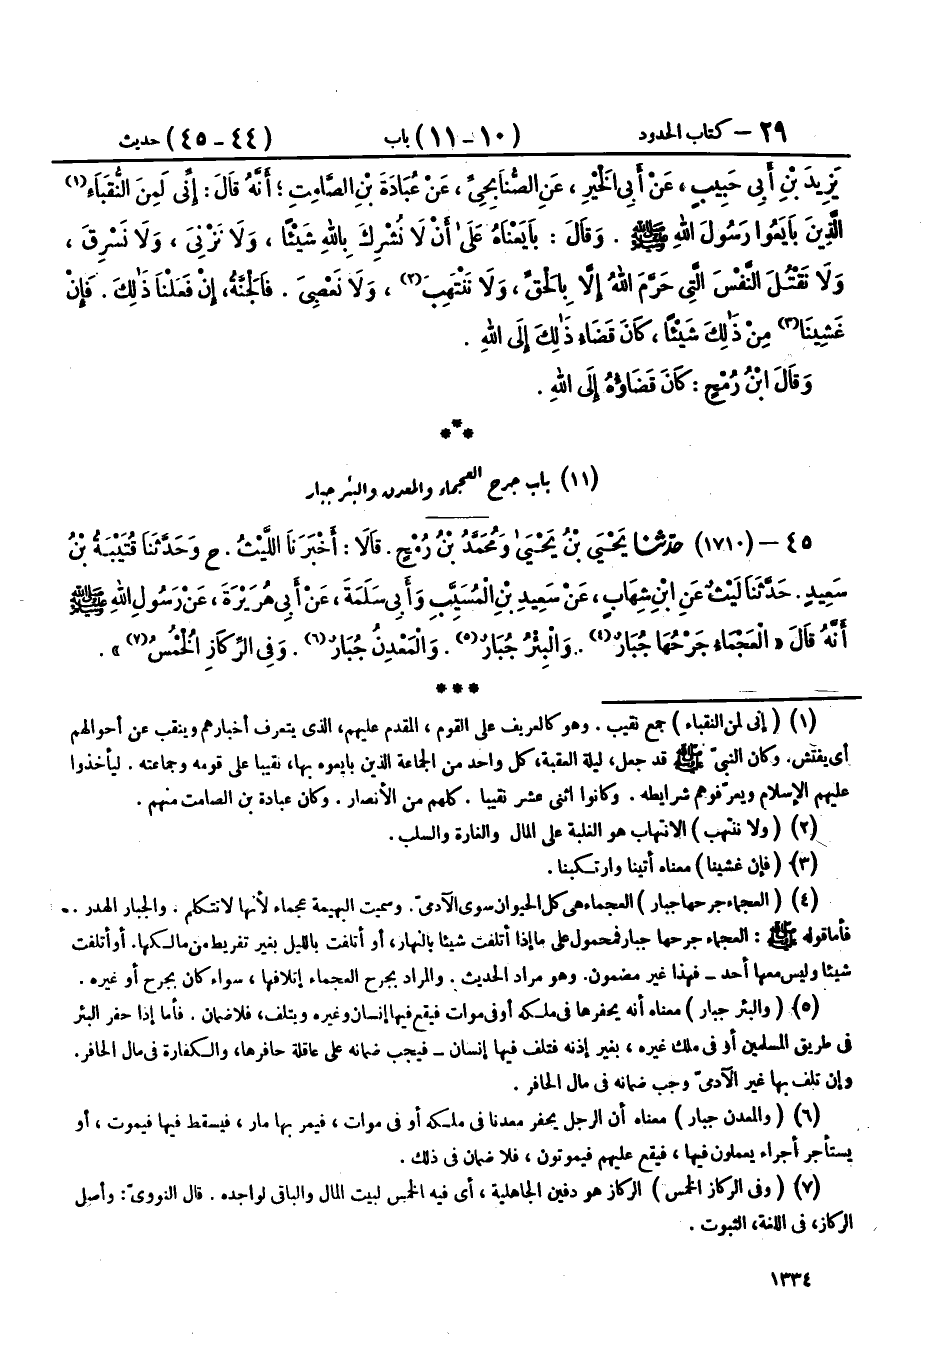 ٢٩ – كتاب الحدود (١٠–١١) باب (٤٤–٤٥) حديث
يَزِيدَ بْنِ أَبِي حَبِيبٍ، عَنْ أَبِي الْخَيْرِ، عَنِ الصُّنَابِحِيِّ، عَنْ عُبَادَةَ بْنِ الصَّامِتِ؛ أَنَّهُ قَالَ: إِنِّي لَمِنَ النُّقَبَاءِ(١)
الَّذِينَ بَايَعُوا رَسُولَ اللهِ ﷺ. وَقَالَ: بَايَعْنَاهُ عَلَىٰ أَنْ لَا نُشْرِكَ بِاللهِ شَيْئًا، وَلَا نَزْنِيَ، وَلَا نَسْرِقَ،
وَلَا نَقْتُلَ النَّفْسَ الَّتِي حَرَّمَ اللهُ إِلَّا بِالْحَقِّ، وَلَا نَنْتَهِبَ(٢)، وَلَا نَعْصِيَ. فَالْجَنَّةُ، إِنْ فَعَلْنَا ذَٰلِكَ. فَإِنْ
غَشِينَا(٣) مِنْ ذَٰلِكَ شَيْئًا، كَانَ قَضَاءُ ذَٰلِكَ إِلَى اللهِ.
وَقَالَ ابْنُ رُمْحٍ: كَانَ قَضَاؤُهُ إِلَى اللهِ.
***
(١١) باب جرح العجماء والمعدن والبئر جبار
٤٥ – (١٧١٠) حَدَّثَنَا يَحْيَىٰ بْنُ يَحْيَىٰ وَمُحَمَّدُ بْنُ رُمْحٍ. قَالَا: أَخْبَرَنَا اللَّيْثُ. ح وَحَدَّثَنَا قُتَيْبَةُ بْنُ
سَعِيدٍ. حَدَّثَنَا لَيْثٌ عَنِ ابْنِ شِهَابٍ، عَنْ سَعِيدِ بْنِ الْمُسَيَّبِ وَأَبِي سَلَمَةَ، عَنْ أَبِي هُرَيْرَةَ، عَنْ رَسُولِ اللهِ ﷺ
أَنَّهُ قَالَ «الْعَجْمَاءُ جَرْحُهَا جُبَارٌ(٤). وَالْبِئْرُ جُبَارٌ(٥). وَالْمَعْدِنُ جُبَارٌ(٦). وَفِي الرِّكَازِ الْخُمْسُ(٧)».
***
(١) (إنى لمن النقباء) جمع نقيب. وهو كالعريف على القوم، المقدم عليهم، الذى يتعرف أخبارهم وينقب عن أحوالهم
أى يفتش. وكان النبىّ ﷺ قد جعل، ليلة العقبة، كل واحد من الجماعة الذين بايعوه بها، نقيبا على قومه وجماعته. ليأخذوا
عليهم الإسلام ويعرّفوهم شرائطه. وكانوا اثنى عشر نقيبا. كلهم من الأنصار. وكان عبادة بن الصامت منهم.
(٢) (ولا ننتهب) الانتهاب هو الغلبة على المال والغارة والسلب.
(٣) (فإن غشينا) معناه أتينا وارتكبنا.
(٤) (العجماء جرحها جبار) العجماء هى كل الحيوان سوى الآدمىّ. وسميت البهيمة عجماء لأنها لا تتكلم. والجبار الهدر.
فأما قوله ﷺ: العجماء جرحها جبار فمحمول على ما إذا أتلفت شيئا بالنهار، أو أتلفت بالليل بغير تفريط من مالكها. أو أتلفت
شيئا وليس معها أحد – فهذا غير مضمون. وهو مراد الحديث. والمراد بجرح العجماء إتلافها، سواء كان بجرح أو غيره.
(٥) (والبئر جبار) معناه أنه يحفرها فى ملكه أو فى موات فيقع فيها إنسان وغيره ويتلف، فلا ضمان. فأما إذا حفر البئر
فى طريق المسلمين أو فى ملك غيره، بغير إذنه فتلف فيها إنسان – فيجب ضمانه على عاقلة حافرها، والكفارة فى مال الحافر.
وإن تلف بها غير الآدمىّ وجب ضمانه فى مال الحافر.
(٦) (والمعدن جبار) معناه أن الرجل يحفر معدنا فى ملكه أو فى موات، فيمر بها مار، فيسقط فيها فيموت، أو
يستأجر أجراء يعملون فيها، فيقع عليهم فيموتون، فلا ضمان فى ذلك.
(٧) (وفى الركاز الخمس) الركاز هو دفين الجاهلية، أى فيه الخمس لبيت المال والباقى لواجده. قال النووىّ: وأصل
الركاز، فى اللغة، الثبوت.
١٣٣٤